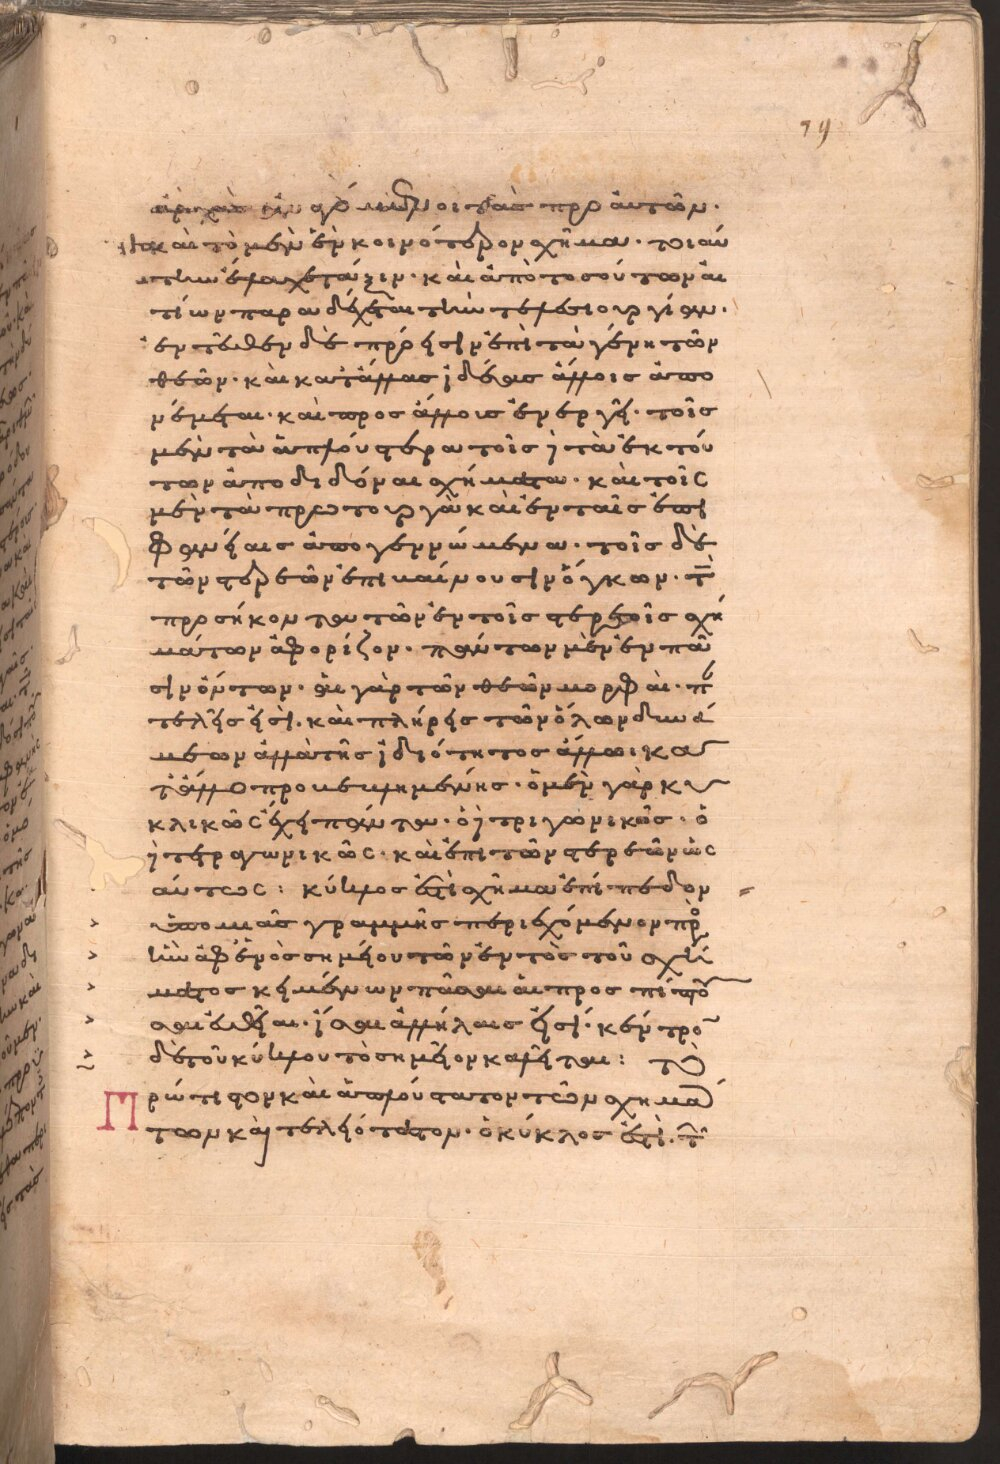 οἰκείας πρὸ αὐτῶν.
καὶ τὸ μὲν ἐν κοινότερον σχῆμα. τοιαύ
την ἔλαχε τάξιν. καὶ ἀπὸ τοσούτων αἰ
τίων παραδέχεται τὴν τελεσιουργίαν.
ἐντεῦθεν δὲ πρόεισιν ἐπὶ τὰ γένη τῶν
θεῶν. καὶ κατ' ἄλλας ἰδέας ἄλλοις ἀπο
νέμεται. καὶ πρὸς ἄλλοις ἐνεργεῖ. τοῖς
μὲν τὰ ἁπλούστερα τοῖς δὲ τὰ ἐκ τού
των ἀποδιδόναι σχήματα. καὶ τοῖς
μὲν τὰ πρωτουργὰ καὶ ἐν ταῖς ἐπι
φανείαις ἀπογεννώμενα. τοῖς δὲ
τῶν στερεῶν ἐπικαίνουσιν ὄγκων. τὰ
προσήκοντα τῶν ἐν τοῖς στερεοῖς σχη
μάτων ἀφορίζον. πάντων μὲν ἐν πᾶ
σιν ὄντων. αἱ γὰρ τῶν θεῶν μορφαὶ. παν
τελεῖς εἰσὶ. καὶ πλήρεις τῶν ὅλων δυνά
μεων ἀλλὰ τῆς ἰδιότητος ἄλλῳ κατ'
ἄλλο προνενεμημένης. ὁ μὲν γὰρ κυ
κλικῶς ἔχει πάντα. ὁ δὲ τριγωνικῶς. ὁ
δὲ τετραγωνικῶς. καὶ ἐπὶ τῶν στερεῶν ὡς
αύτως : κύκλος ἐστὶ σχῆμα ἐπίπεδον
ὑπὸ μιᾶς γραμμῆς περιεχόμενον πρὸς
ἣν ἀφ' ἑνὸς σημείου τῶν ἐντὸς τοῦ σχή
ματος κειμένων πᾶσαι αἱ προσπίπτου
σαι εὐθεῖαι. ἴσαι ἀλλήλαις εἰσὶ. κέντρον
δὲ τοῦ κύκλου τὸ σημεῖον καλεῖται : Τὸ
Πρώτιστον καὶ ἁπλούστατον τῶν σχημά
των καὶ τελειότατον. ὁ κύκλος ἐστὶ. τῶν